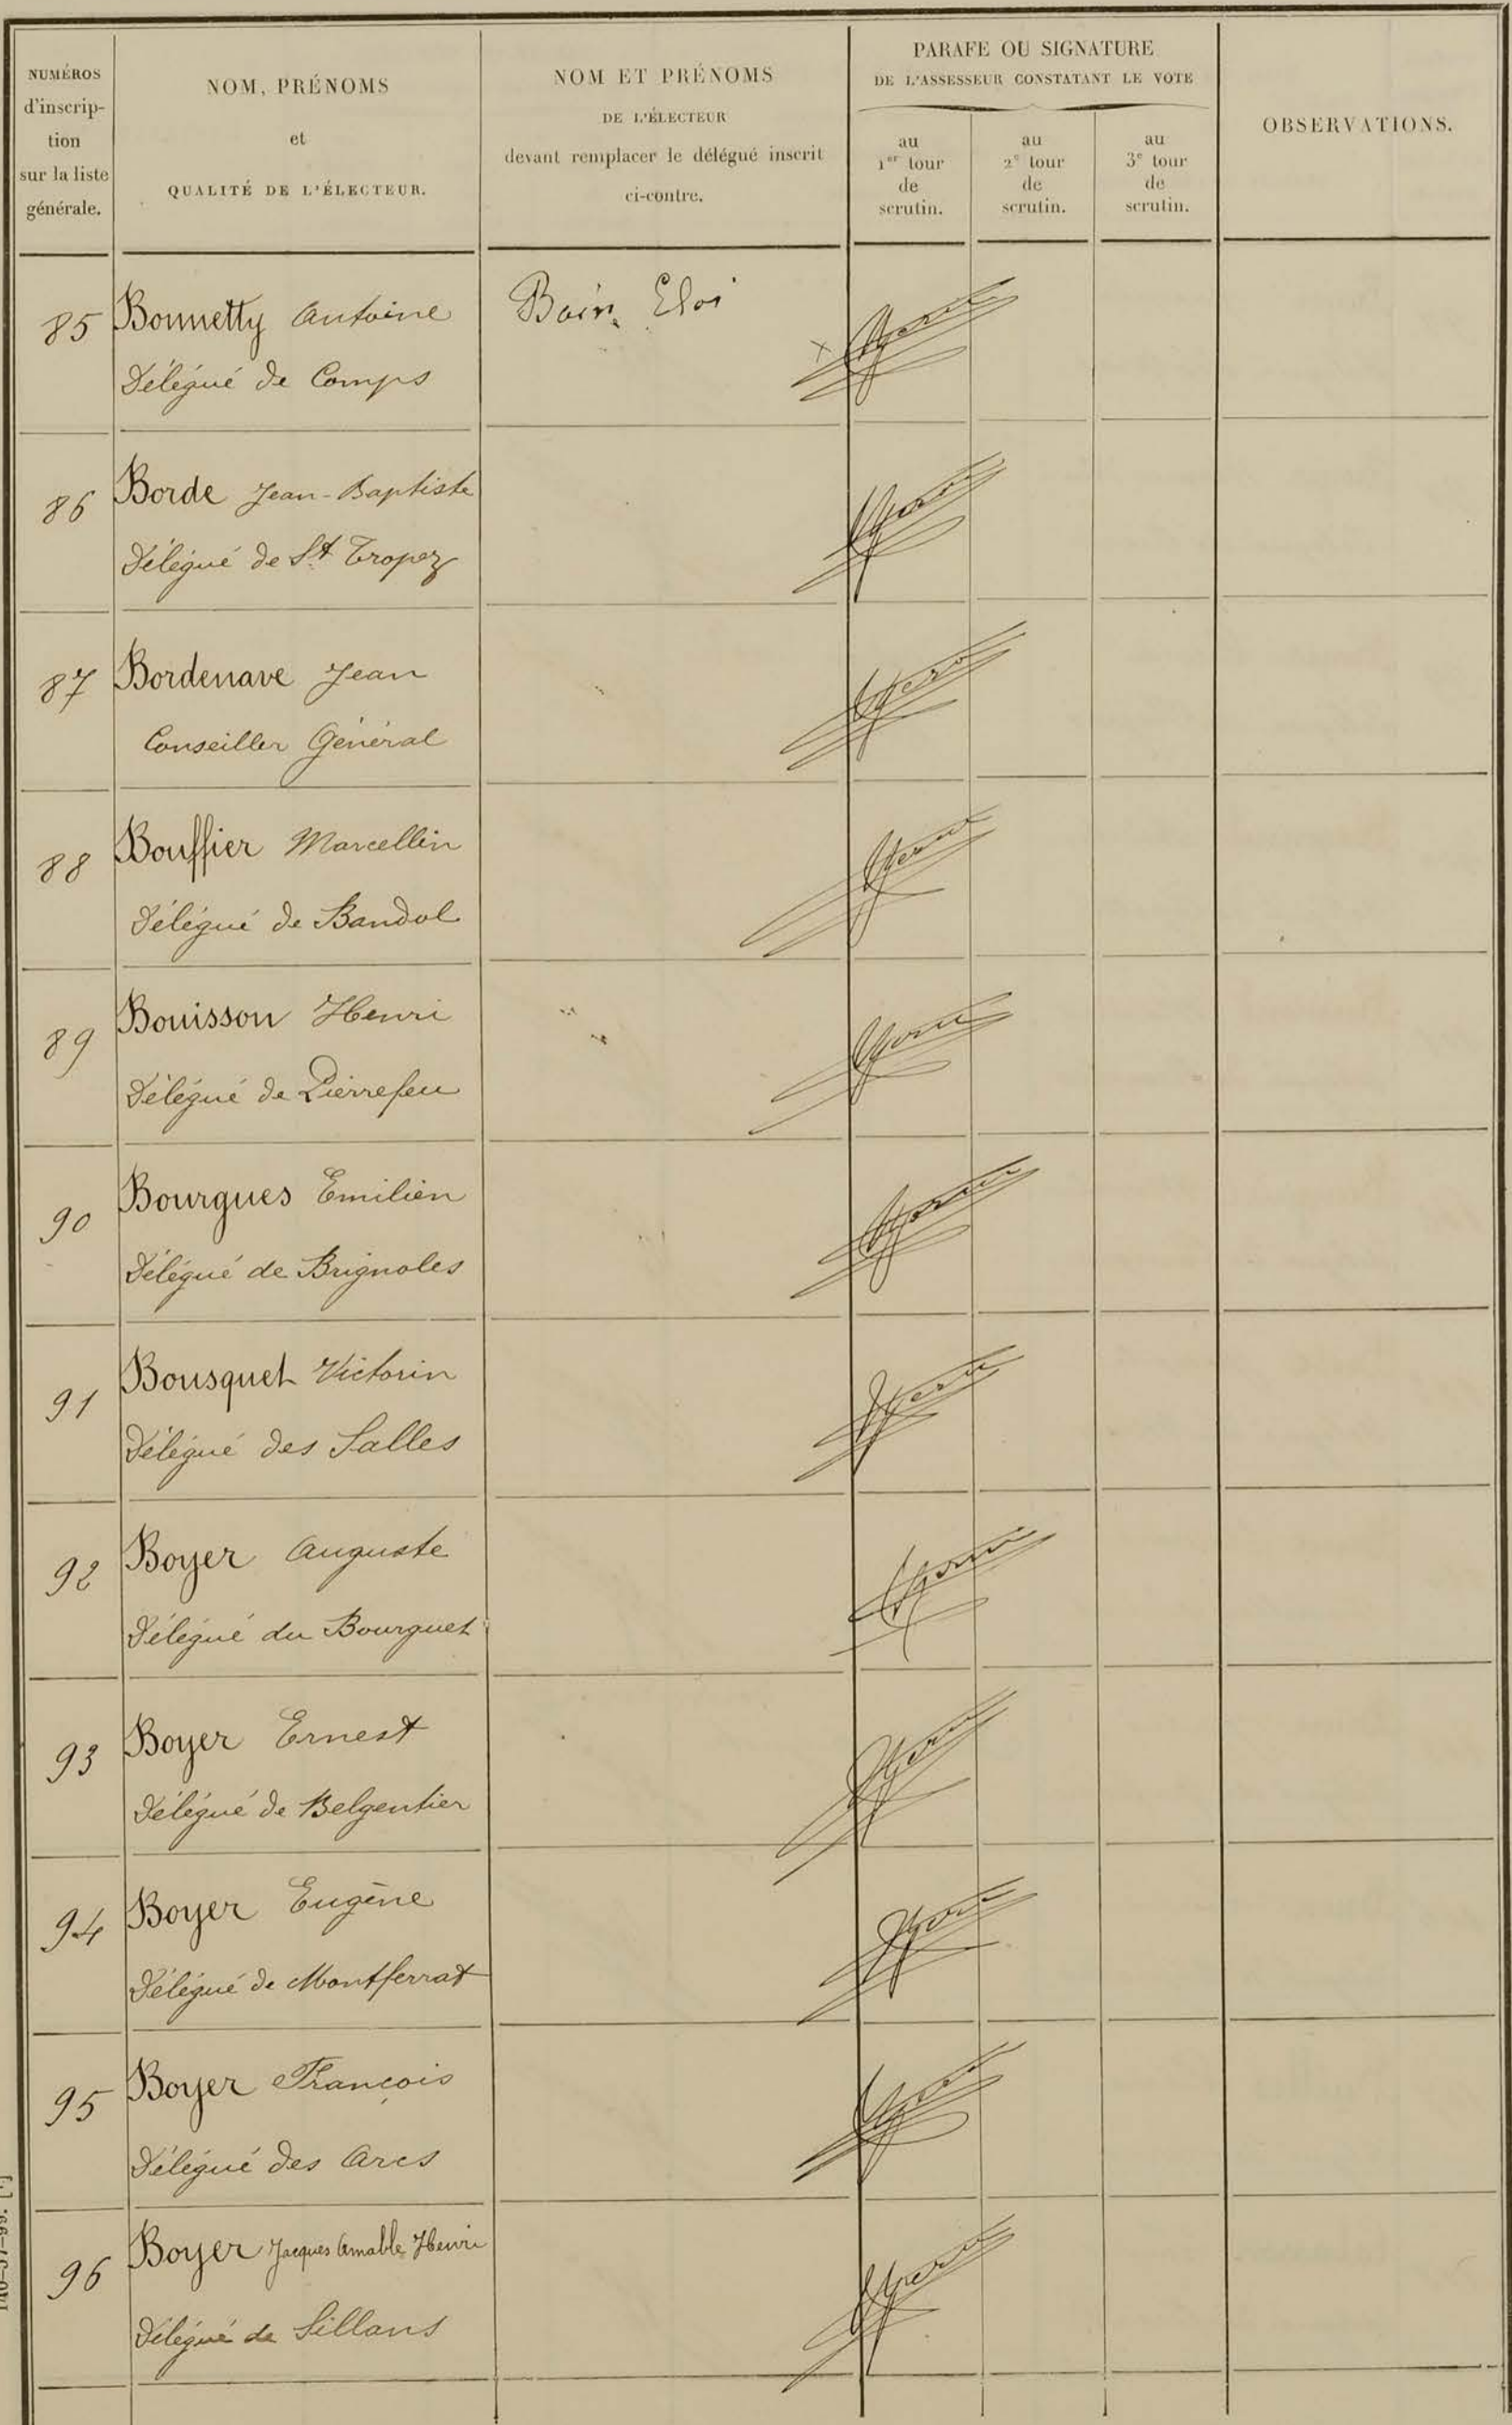 NUMÉROS
d'inscrip-
tion
sur la liste
générale.
NOM, PRÉNOMS
et
QUALITÉ DE L'ÉLECTEUR.
NOM ET PRÉNOMS
DE L'ÉLECTEUR
devant remplacer le délégué inscrit
ci-contre.
PARAFE OU SIGNATURE
DE L'ASSESSEUR CONSTATANT LE VOTE
au
1er tour
de
scrutin.
au
2e tour
de
scrutin.
au
3e tour
de
scrutin.
OBSERVATIONS.
85 Bonnetty Antoine Bain Eloi
Délégué de Comps
86 Borde Jean-Baptiste
Délégué de St Tropez
87 Bordenave Jean
Conseiller Général
88 Bouffier Marcellin
Délégué de Bandol
89 Bouisson Henri
Délégué de Pierrefeu
90 Bourgues Emilien
Délégué de Brignoles
91 Bousquet Victorin
Délégué des Salles
92 Boyer Auguste
Délégué du Bourguet
93 Boyer Ernest
Délégué de Belgentier
94 Boyer Eugène
Délégué de Montferrat
95 Boyer François
Délégué des Arcs
96 Boyer Jacques Amable Henri
Délégué de Sillans